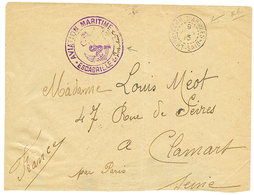 AVIATION MARITIME
ESCADRILLE
Madame Louis Méot
47 Rue de Sèvres
à Clamart
(France) par Paris Seine